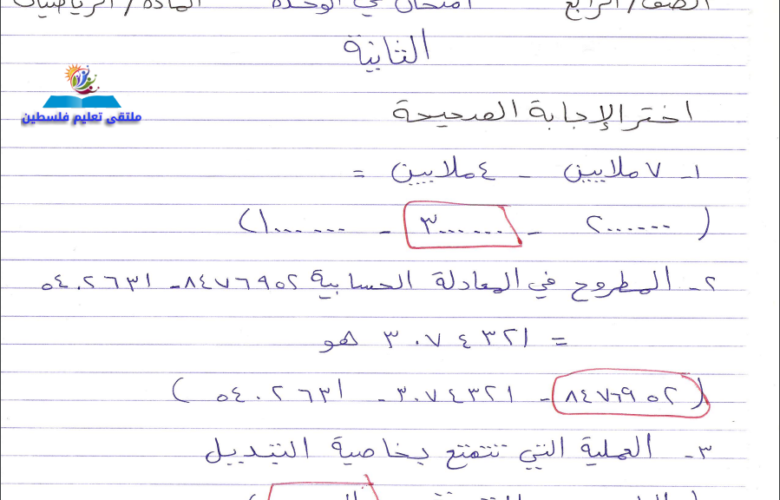 الصف/ الرابع امتحان في الوحدة المادة/ الرياضيات
الثانية
ملتقى تعليم فلسطين
اختر الإجابة الصحيحة
١- ٧ ملايين - ٤ ملايين =
(٢٠٠٠٠٠٠ - ٣٠٠٠٠٠٠ - ١٠٠٠٠٠٠)
٢- المطروح في المعادلة الحسابية ٨٤٧٦٩٥٢ - ٥٤٠٢٦٣١
= ٣٠٧٤٣٢١ هو
(٨٤٧٦٩٥٢ - ٣٠٧٤٣٢١ - ٥٤٠٢٦٣١)
٣- العملية التي تتمتع بخاصية التبديل